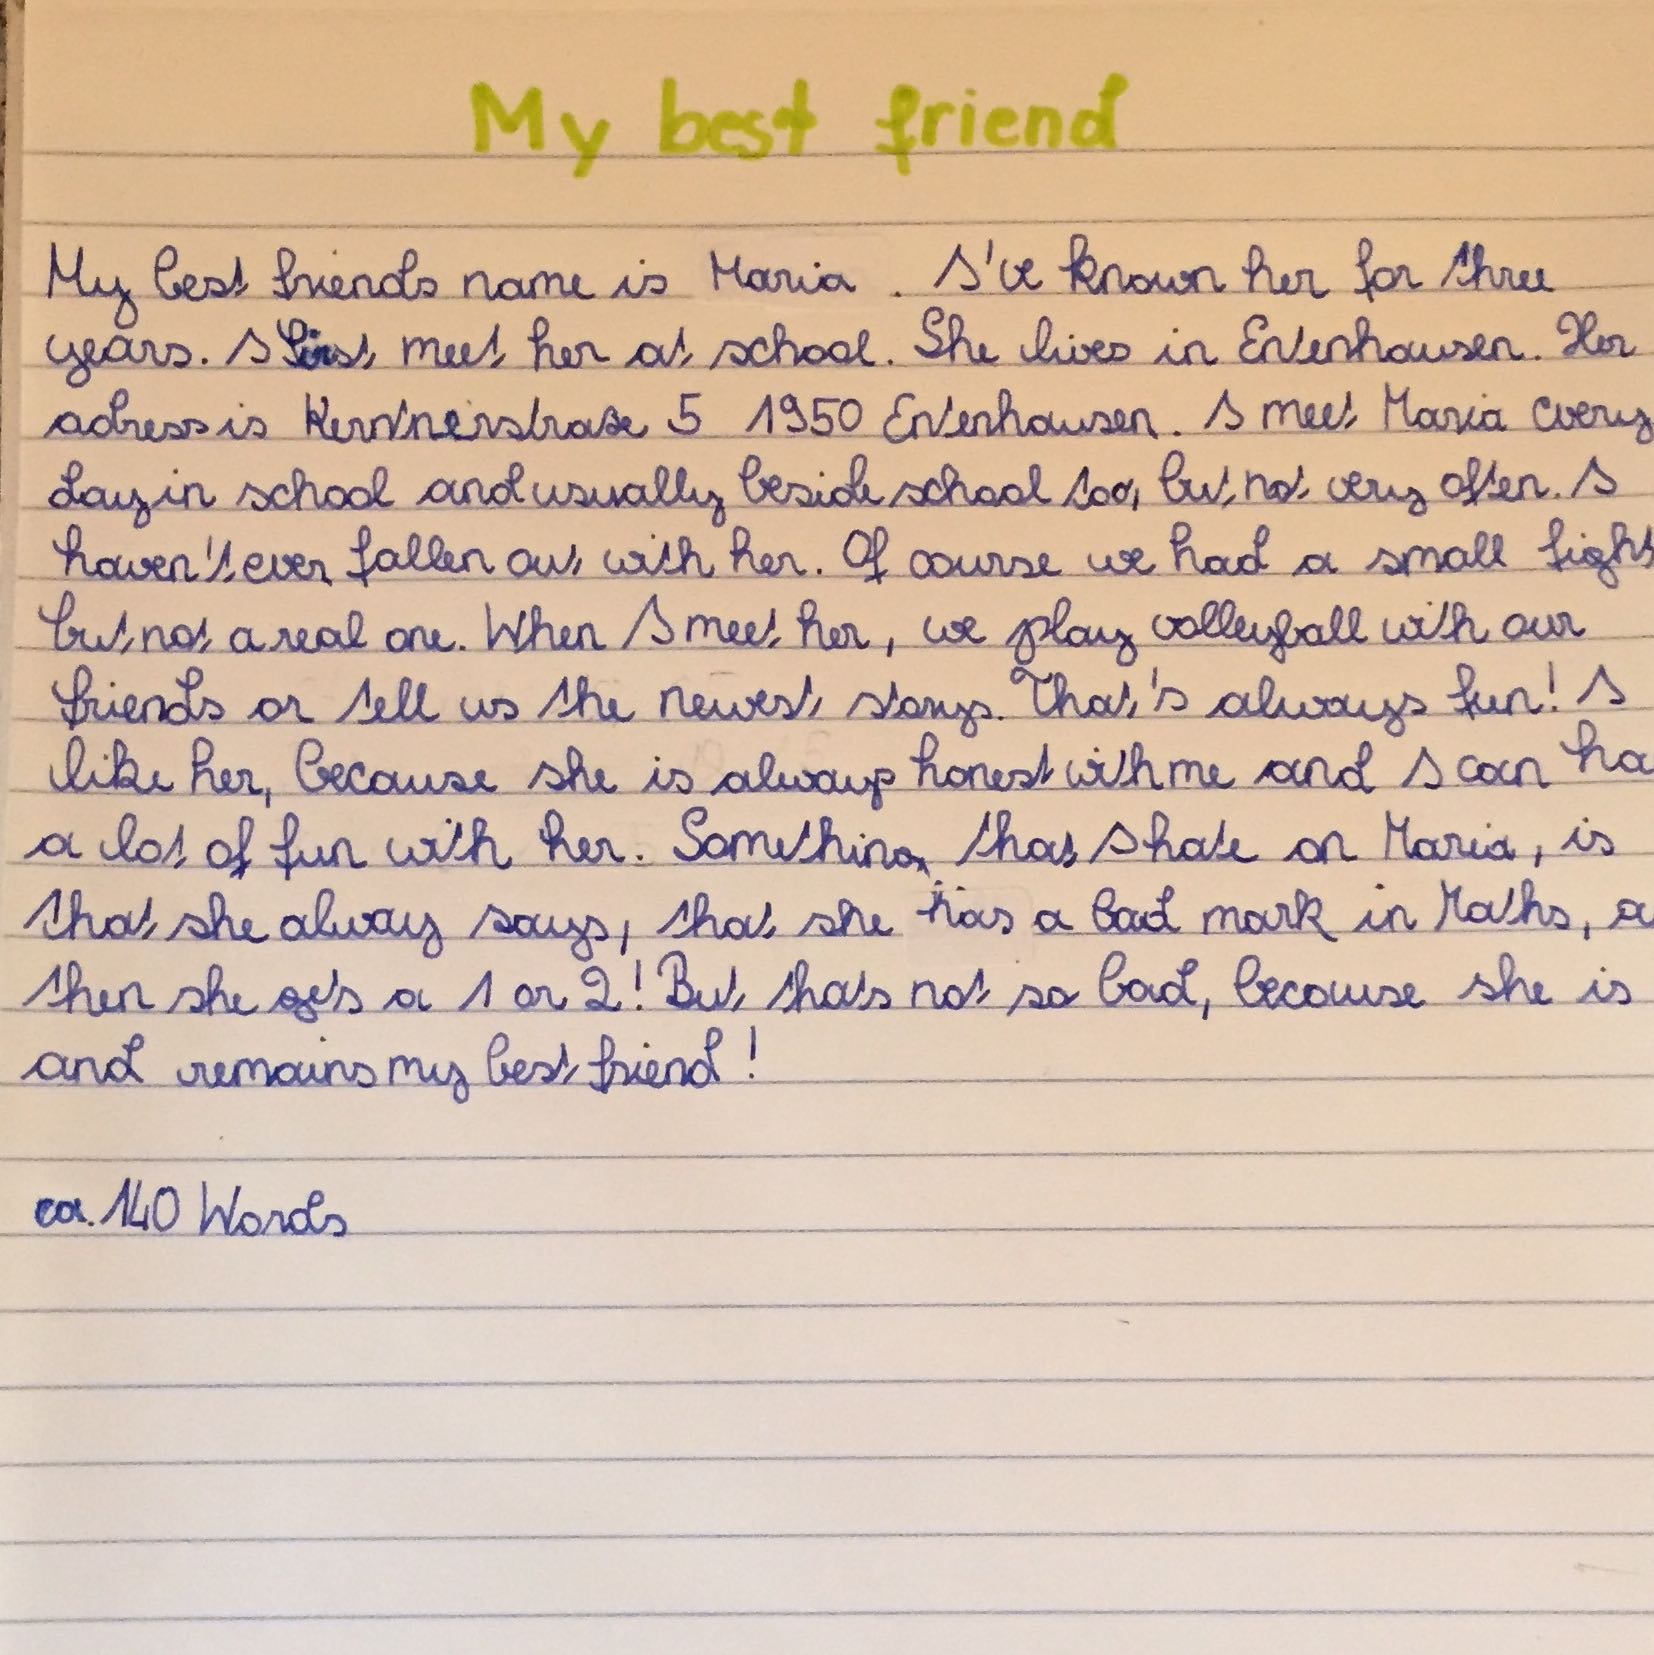 My best friend
My best friends name is Maria . I've known her for three
years. I first meet her at school. She lives in Entenhausen. Her
adress is Kerntnerstraße 5 1950 Entenhausen. I meet Maria every
day in school and usually beside school too, but not very often. I
haven't ever fallen out with her. Of course we had a small fight
but not a real one. When I meet her, we play volleyball with our
friends or tell us the newest storys. That's always fun! I
like her, because she is always honest with me and I can ha
a lot of fun with her. Something, that I hate on Maria, is
that she alway says, that she has a bad mark in Maths, a
then she gets a 1 or 2! But thats not so bad, because she is
and remains my best friend!
ca. 140 Words